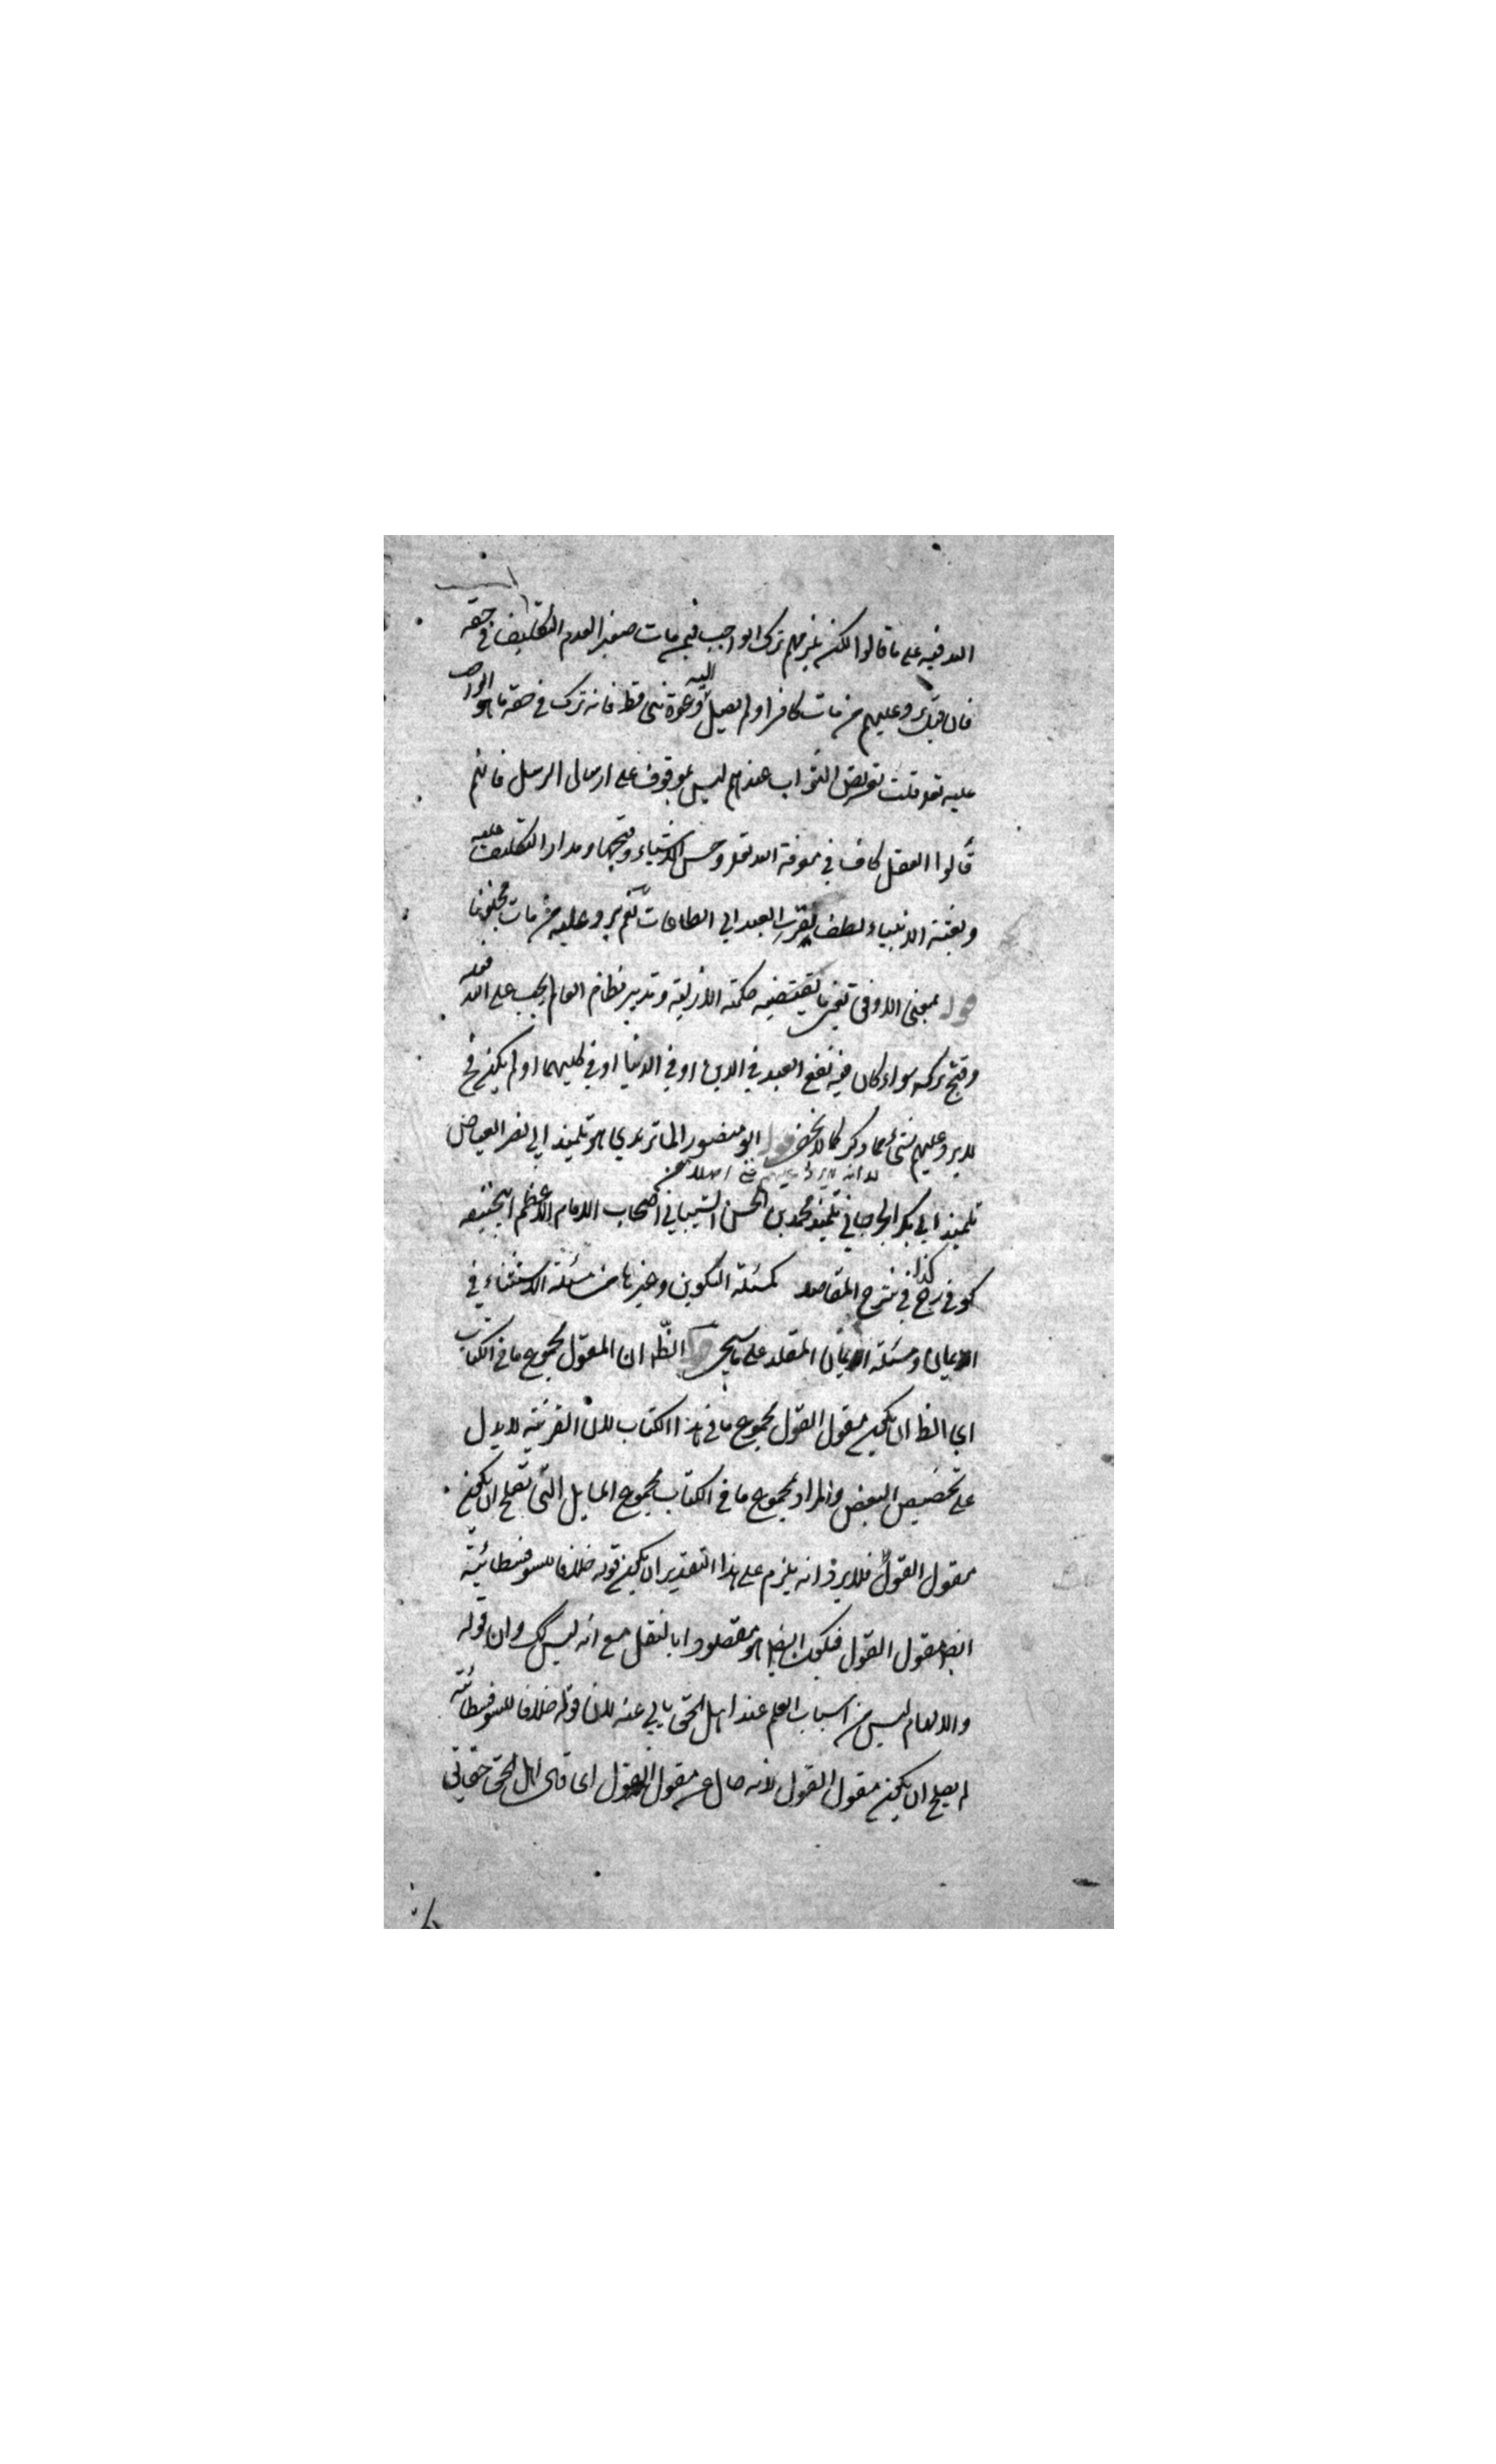 الله فيه على ما قالوا لكنه يلزمهم ترك الواجب فيمن مات صغيرا لعدم التكليف في حقه
فان قيل يرد عليهم من مات كافرا ولم يصل اليه دعوة نبي قط فانه ترك في حقه ما هو الواجب
عليه تعه قلت تعريض الثواب عندهم ليس بموقوف على ارسال الرسل فانهم
قالوا العقل كاف في معرفة الله تعه وحسن الاشياء وقبحها ومدار التكليف عليه
وبعثة الانبياء لطف يقرب العبد الى الطاعات نعم يرد عليه من مات مجنونا
قوله بمعنى الاوفق يعني ما تقتضيه حكمته الازلية وتدبير نظام العالم يجب على الله فعله
وقبح تركه سواء كان فيه نفع العبد في الدين او في الدنيا او في كليهما او لم يكن فح
لا يرد عليهم شئ مما ذكر كما لا يخفى قوله ابو منصور الماتريدي هو تلميذ ابي نصر العياض
تلميذ ابي بكر الجرجاني تلميذ محمد بن الحسن الشيباني من اصحاب الامام الاعظم ابيحنيفه
كوفي رح كذا في شرح المقاصد كمسئلة التكوين وغيرها من مسئلة الاستثناء في
الايمان ومسئلة ايمان المقلد على ما سيجئ قوله الظ ان المقول مجموع ما في الكتاب
اي الظ ان يكون مقول القول مجموع ما في هذا الكتاب لان القرينة لا يدل
على تخصيص البعض والمراد بمجموع ما في الكتاب مجموع المسايل التي تصلح ان يكون
مقول القول فلا يرد انه يلزم على هذا التقدير ان يكون قوله خلافا للسوفسطائية
ايض مقول القول فيكون ايضا هو مقصودا بالنقل مع انه ليس كك وان قوله
والالهام ليس من اسباب العلم عند اهل الحق يابى عنه لان قوله خلافا للسوفسطائية
لم يصلح ان يكون مقول القول لانه حال عن مقول القول اي قال اهل الحق حقائق